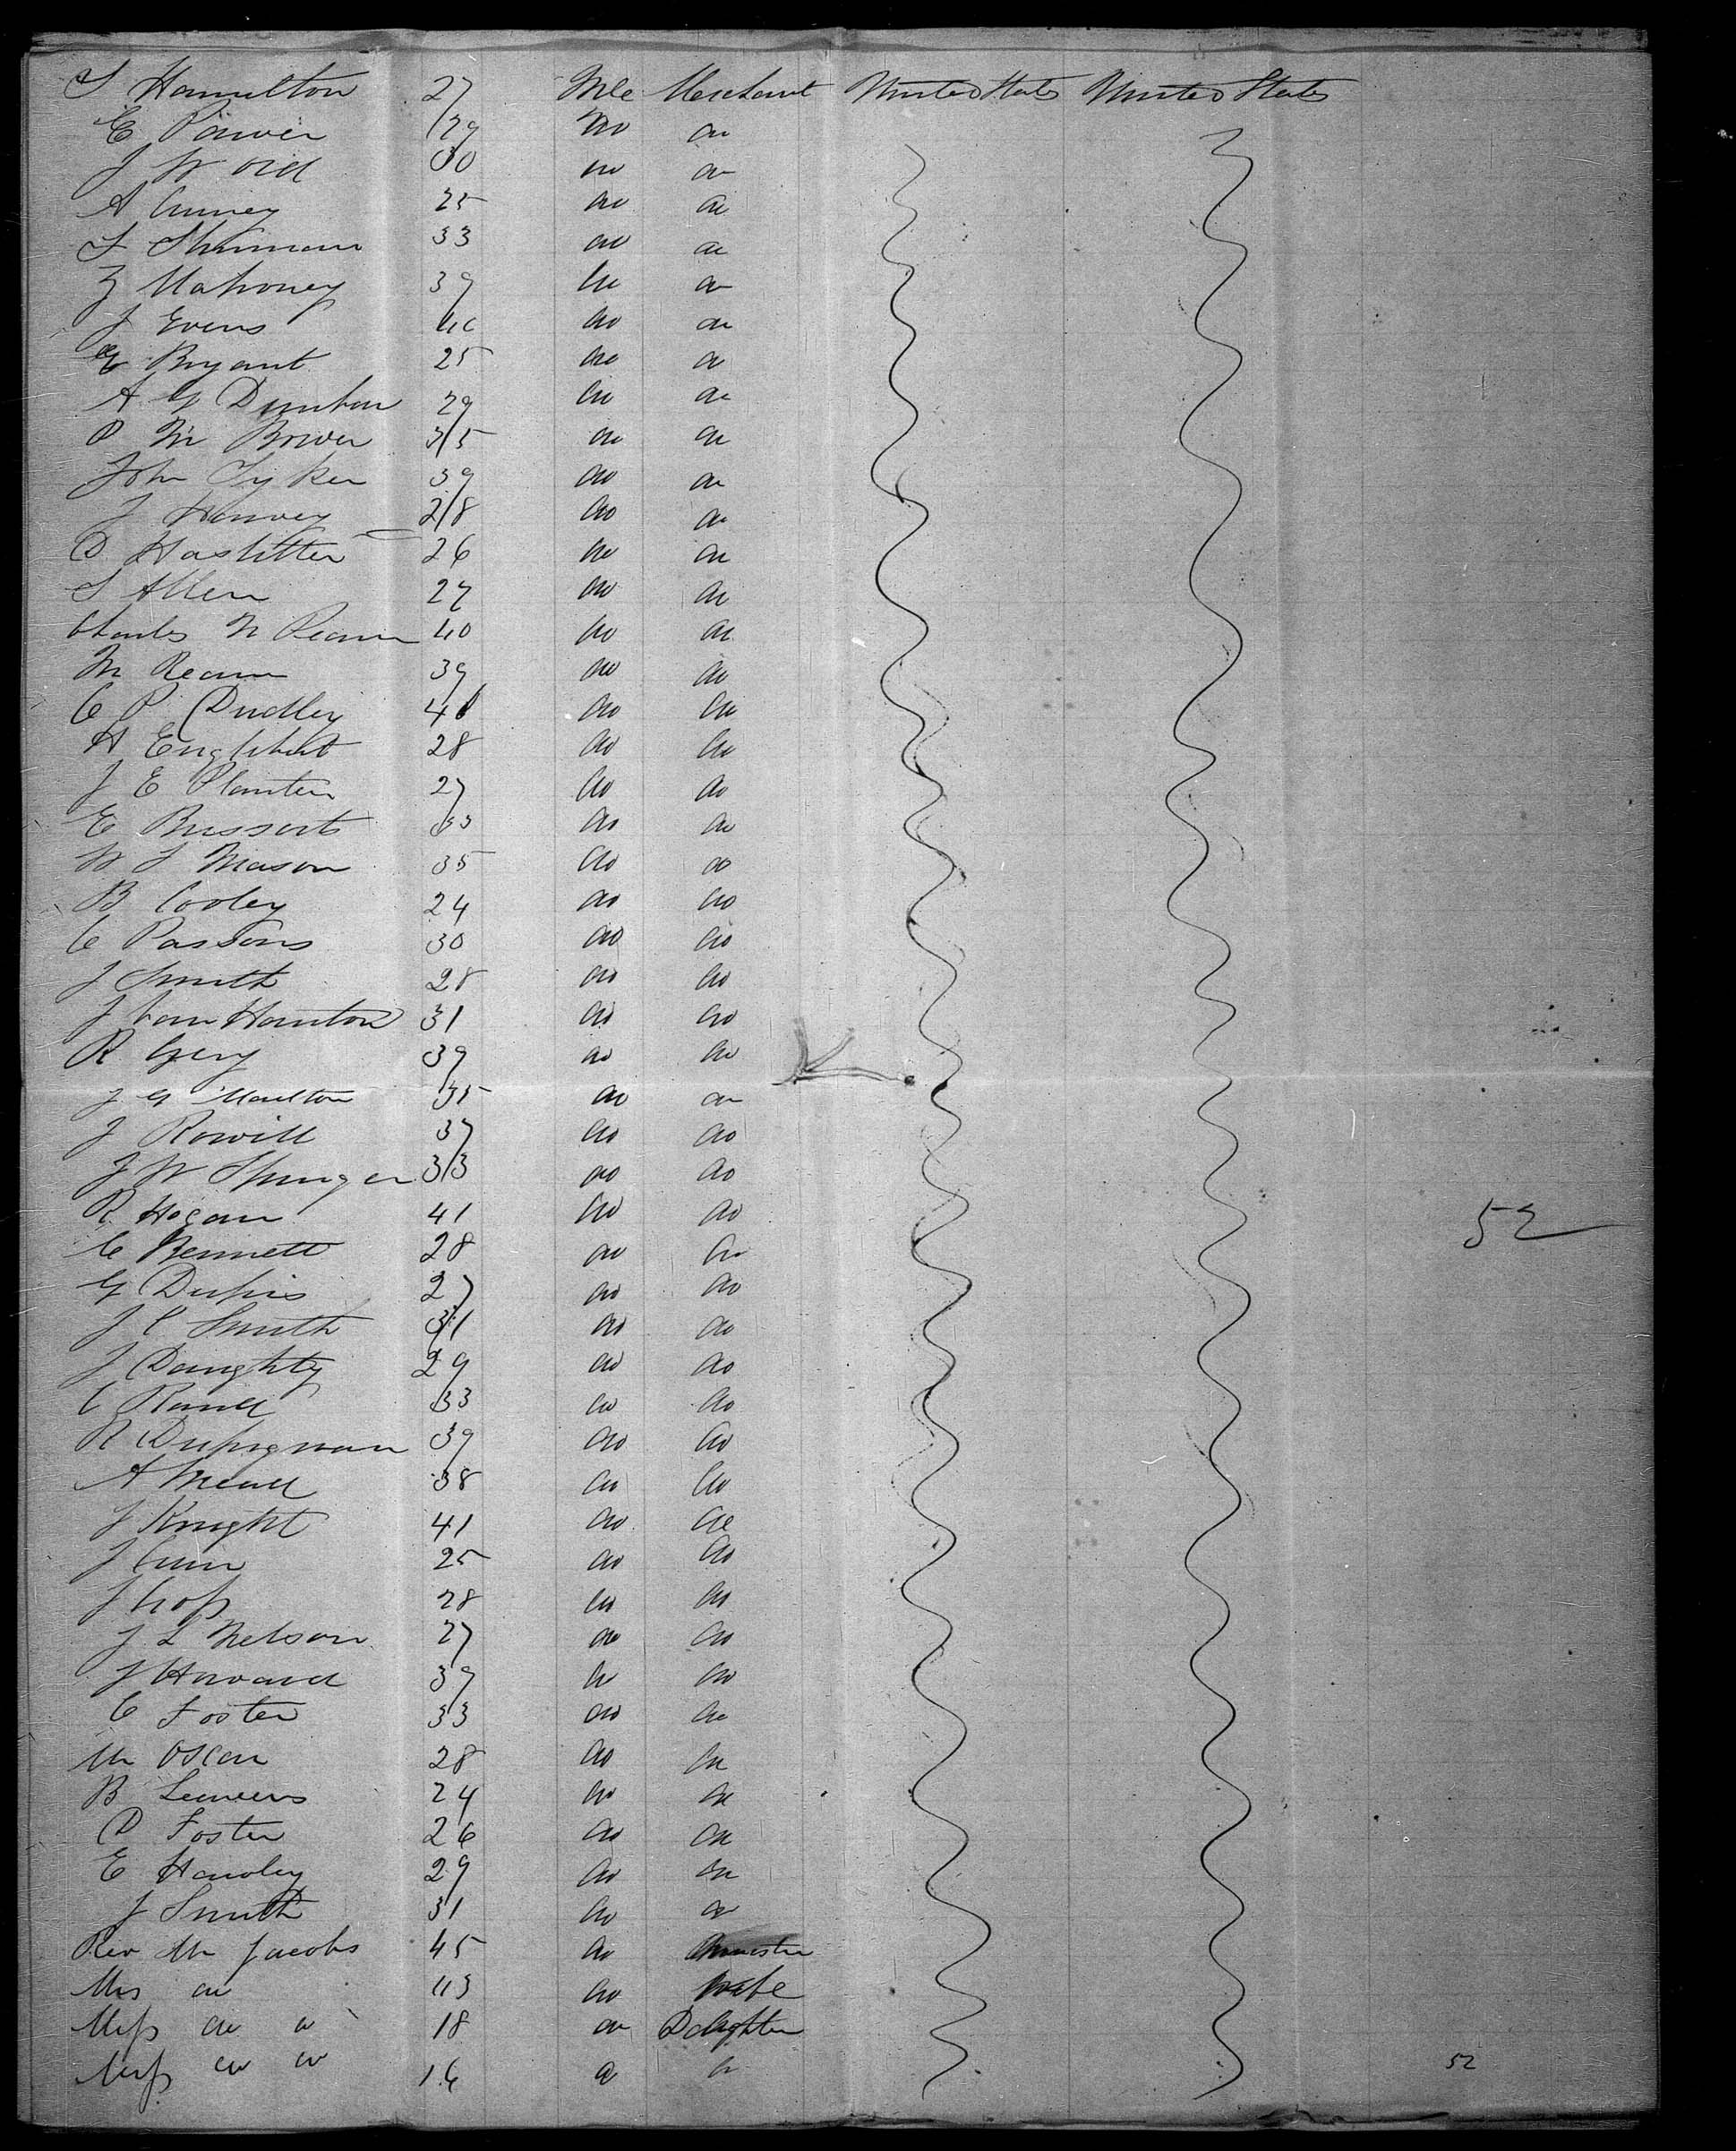 S Hamilton 27 Mle Merchant United States United States
E Power 29 do do
J W Old 30 do do
A 25 do do
33 do do
Z Mahoney 39 do do
J Evens 40 do do
G Bryant 25 do do
A G Dunbar 29 do do
P M Brower 35 do do
John Syker 39 do do
J Harvey 28 do do
D 26 do do
S Allen 27 do do
Charles N 40 do do
M 39 do do
C P Dudley do do
H Englebert 28 do do
J E Planten 27 do do
E 33 do do
W S Mason 35 do do
B Cooley 24 do do
C Parsons 30 do do
J Smith 28 do do
J Van Hauton 31 do do
R Gery 39 do do
J G Moulton 35 do do
J Rowill 37 do do
J W Springer 33 do do
R Hogan 41 do do
C Bennett 28 do do
52
G Dupis 27 do do
J C Smith 31 do do
J Daughty 29 do do
C Rand 33 do do
R 39 do do
A Mead 38 do do
J Knight 41 do do
J Cain 25 do do
J 28 do do
J L Nelson 27 do do
J Howard 39 do do
C Foster 33 do do
Mr Oscar 28 do do
B 24 do do
D Foster 26 do do
E Hawley 29 do do
J Smith 31 do do
Rev Mr Jacobs 45 do
Mrs do 43 do Wife
Miss do do 18 do Daghter
Miss do do 16 do do
52